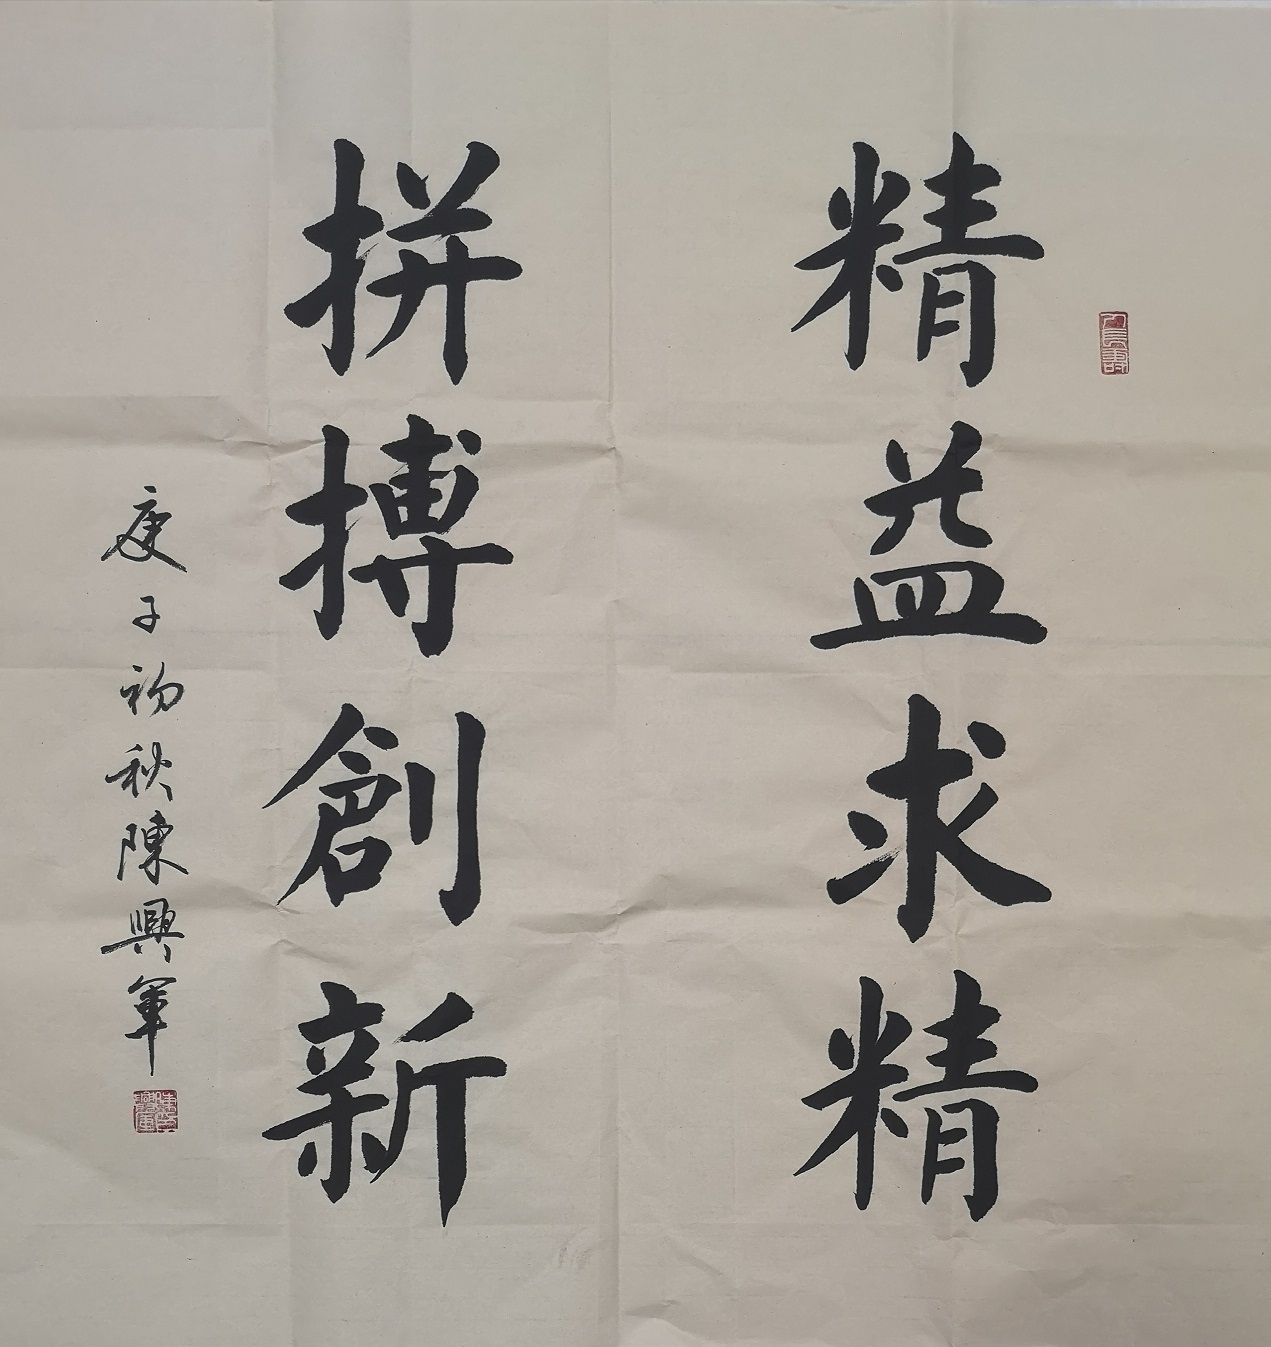 精益求精
拼搏創新
庚子初秋陳興軍